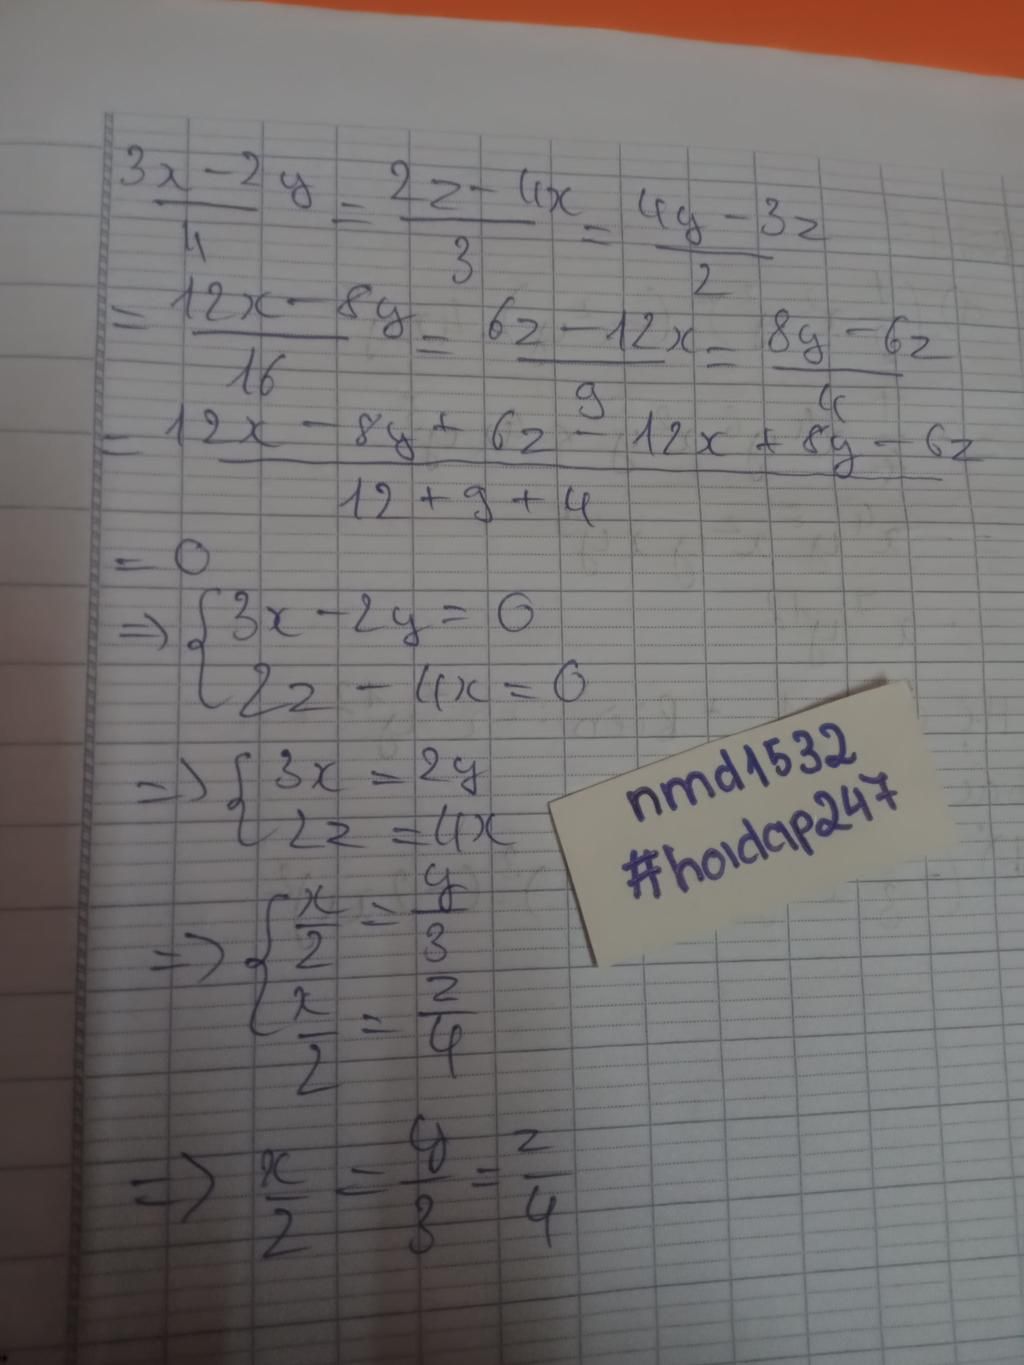 (3x - 2y)/4 = (2z - 4x)/3 = (4y - 3z)/2
= (12x - 8y)/16 = (6z - 12x)/9 = (8y - 6z)/4
= (12x - 8y + 6z - 12x + 8y - 6z)/(12 + 9 + 4)
= 0
=> { 3x - 2y = 0
2z - 4x = 0
=> { 3x = 2y
2z = 4x
=> { x/2 = y/3
x/2 = z/4
=> x/2 = y/3 = z/4
nmd1532
#hoidap247